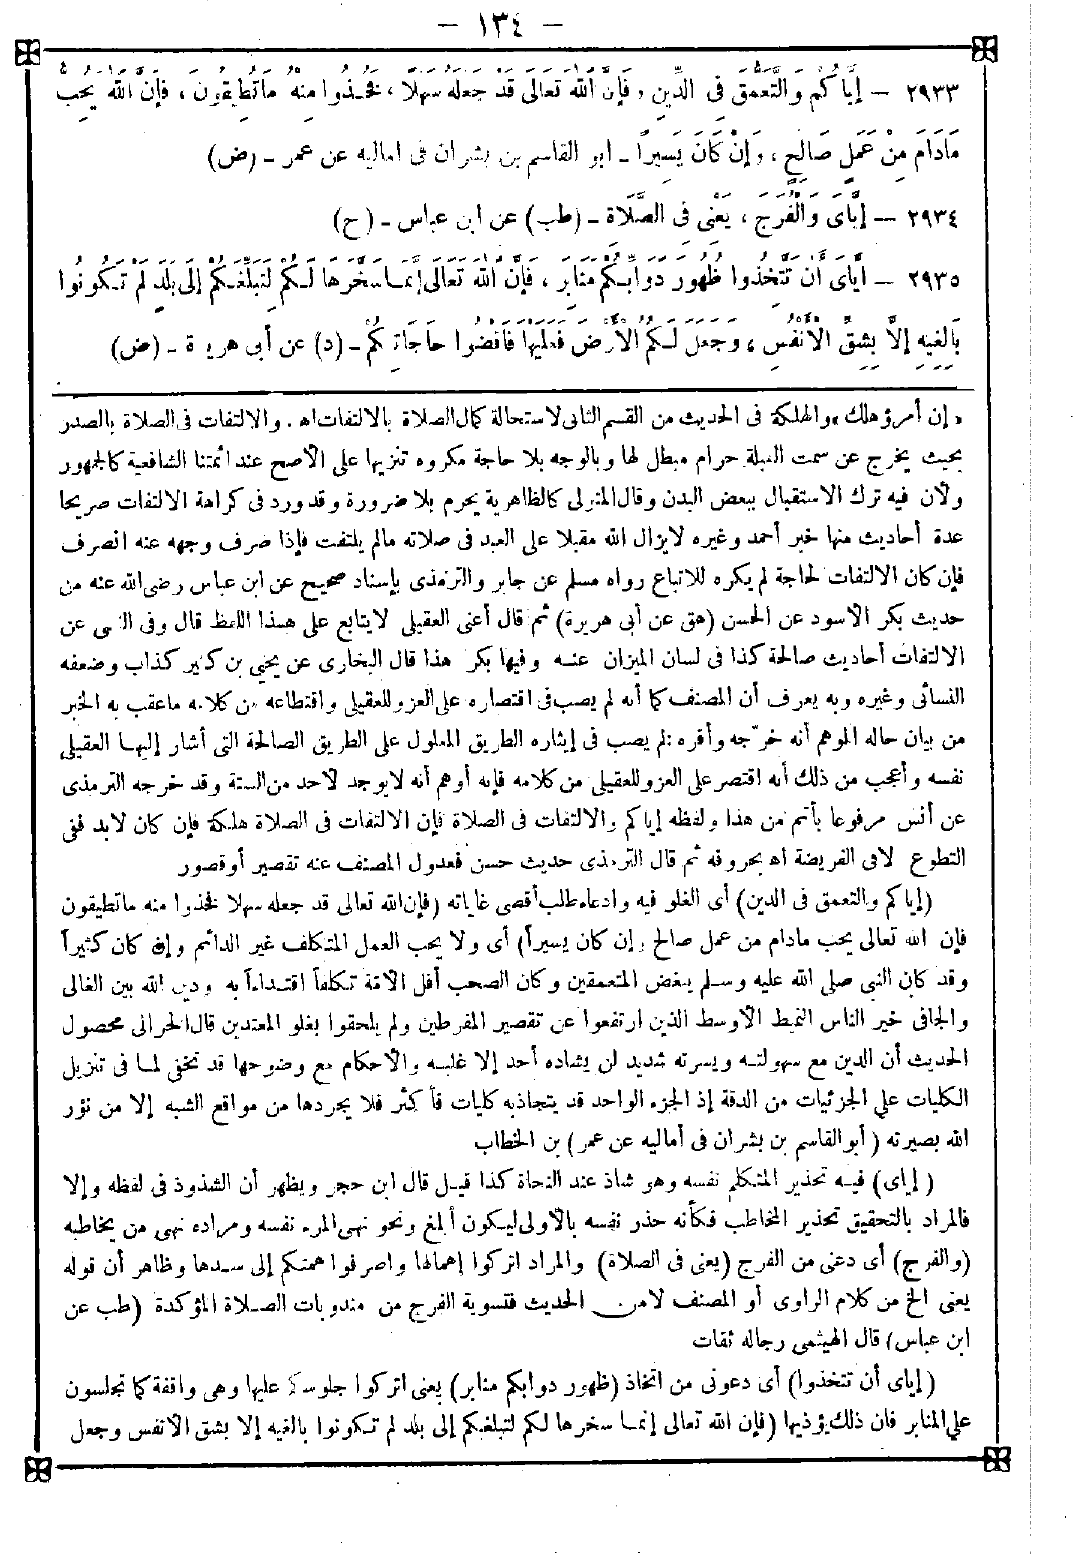 - ١٣٤ -
٢٩٣٣ - إِيَّاكُمْ وَالتَّعَمُّقَ فِى الدِّينِ، فَإِنَّ اللهَ تَعَالَى قَدْ جَعَلَهُ سَهْلًا، فَخُذُوا مِنْهُ مَا تُطِيقُونَ، فَإِنَّ اللهَ يُحِبُّ
مَا دَامَ مِنْ عَمَلٍ صَالِحٍ، وَإِنْ كَانَ يَسِيرًا - ابو القاسم بن بشران فى اماليه عن عمر - (ض)
٢٩٣٤ - إِيَّاىَ وَالْفُرَجَ، يَعْنِى فِى الصَّلَاةِ - (طب) عن ابن عباس - (ح)
٢٩٣٥ - إِيَّاىَ أَنْ تَتَّخِذُوا ظُهُورَ دَوَابِّكُمْ مَنَابِرَ، فَإِنَّ اللهَ تَعَالَى إِنَّمَا سَخَّرَهَا لَكُمْ لِتُبَلِّغَكُمْ إِلَى بَلَدٍ لَمْ تَكُونُوا
بَالِغِيهِ إِلَّا بِشِقِّ الْأَنْفُسِ، وَجَعَلَ لَكُمُ الْأَرْضَ فَعَلَيْهَا فَاقْضُوا حَاجَاتِكُمْ - (د) عن أبى هريرة - (ض)
«إن أمرؤ هلك» والهلكة فى الحديث من القسم الثانى لاستحالة كمال الصلاة بالالتفات اه. والالتفات فى الصلاة بالصدر
بحيث يخرج عن سمت القبلة حرام مبطل لها وبالوجه بلا حاجة مكروه تنزيها على الأصح عند ائمتنا الشافعية كالجمهور
ولأن فيه ترك الاستقبال ببعض البدن وقال المتولى كالظاهرية يحرم بلا ضرورة وقد ورد فى كراهة الالتفات صريحا
عدة أحاديث منها خبر أحمد وغيره لا يزال الله مقبلا على العبد فى صلاته ما لم يلتفت فإذا صرف وجهه عنه انصرف
فإن كان الالتفات لحاجة لم يكره للاتباع رواه مسلم عن جابر والترمذى بإسناد صحيح عن ابن عباس رضى الله عنه من
حديث بكر الأسود عن الحسن (هق عن أبى هريرة) ثم قال أعنى العقيلى لا يتابع على هذا اللفظ قال وفى النهى عن
الالتفات أحاديث صالحة كذا فى لسان الميزان عنه وفيها بكر هذا قال البخارى عن يحيى بن كثير كذاب وضعفه
النسائى وغيره وبه يعرف أن المصنف كما أنه لم يصب فى اقتصاره على العزو للعقيلى واقتطاعه من كلامه ما عقب به الخبر
من بيان حاله الموهم أنه خرّجه وأقره لم يصب فى إيثاره الطريق المعلول على الطريق الصالحة التى أشار إليها العقيلى
نفسه وأعجب من ذلك أنه اقتصر على العزو للعقيلى من كلامه فإنه أوهم أنه لا يوجد لأحد من الستة وقد خرجه الترمذى
عن أنس مرفوعا بأتم من هذا ولفظه إياكم والالتفات فى الصلاة فإن الالتفات فى الصلاة هلكة فإن كان لابد ففى
التطوع لافى الفريضة اه بحروفه ثم قال الترمذى حديث حسن فعدول المصنف عنه تقصير أو قصور
(إياكم والتعمق فى الدين) أى الغلو فيه وادعاء طلب أقصى غاياته (فإن الله تعالى قد جعله سهلا فخذوا منه ما تطيقون
فإن الله تعالى يحب مادام من عمل صالح وإن كان يسيراً) أى ولا يحب العمل المتكلف غير الدائم وإن كان كثيراً
وقد كان النبى صلى الله عليه وسلم يبغض المتعمقين وكان الصحب أقل الأمة تكلفاً اقتداءاً به ودين الله بين الغالى
والجافى خير الناس النمط الأوسط الذين ارتفعوا عن تقصير المفرطين ولم يلحقوا بغلو المعتدين قال الحرانى محصول
الحديث أن الدين مع سهولته ويسرته شديد لن يشاده أحد إلا غلبه والأحكام مع وضوحها قد تخفى لما فى تنزيل
الكليات على الجزئيات من الدقة إذ الجزء الواحد قد يتجاذبه كليات فأكثر فلا يجردها من مواقع الشبه إلا من نور
الله بصيرته (أبو القاسم بن بشران فى أماليه عن عمر) بن الخطاب
(إياى) فيه تحذير المتكلم نفسه وهو شاذ عند النحاة كذا قيل قال ابن حجر ويظهر أن الشذوذ فى لفظه وإلا
فالمراد بالتحقيق تحذير المخاطب فكأنه حذر نفسه بالأولى ليكون أبلغ ونحو نهى المرء نفسه ومراده نهى من يخاطبه
(والفرج) أى دعنى من الفرج (يعنى فى الصلاة) والمراد اتركوا إهمالها واصرفوا همتكم إلى سدها وظاهر أن قوله
يعنى الخ من كلام الراوى أو المصنف لا من الحديث فتسوية الفرج من مندوبات الصلاة المؤكدة (طب عن
ابن عباس) قال الهيثمى رجاله ثقات
(إياى أن تتخذوا) أى دعونى من اتخاذ (ظهور دوابكم منابر) يعنى اتركوا جلوسكم عليها وهى واقفة كما تجلسون
على المنابر فان ذلك يؤذيها (فإن الله تعالى إنما سخرها لكم لتبلغكم إلى بلد لم تكونوا بالغيه إلا بشق الأنفس وجعل